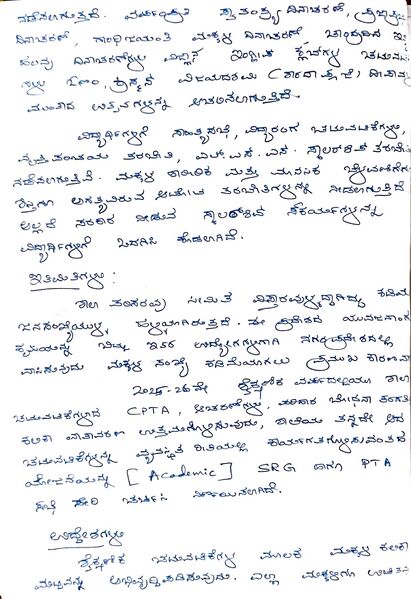 ನಡೆಸಲಾಗುತ್ತದೆ. ವರ್ಷಂಪ್ರತಿ ಸ್ವಾತಂತ್ರ್ಯ ದಿನಾಚರಣೆ,
ದಿನಾಚರಣೆ, ಗಾಂಧಿಜಯಂತಿ ಮಕ್ಕಳ ದಿನಾಚರಣೆ,
ದಿನಾಚರಣೆಗಳು ವಿಜ್ಞಾನ ಇಂಗ್ಲಿಷ್ ಕ್ಲಬ್‌ಗಳು
ಓಣಂ, ವಿಜಯದಶಮಿ (ಶಾರದಾ ಪೂಜೆ)
ಮುಂತಾದ ಉತ್ಸವಗಳನ್ನು ಆಚರಿಸಲಾಗುತ್ತಿದೆ.
ವಿದ್ಯಾರ್ಥಿಗಳಿಗೆ ಸಾಹಿತ್ಯಸಭೆ, ವಿದ್ಯಾರಂಗ ಚಟುವಟಿಕೆಗಳು,
ತರಬೇತಿ, ಎಲ್.ಎಸ್.ಎಸ್. ಸ್ಕಾಲರ್‌ಶಿಪ್ ತರಬೇತಿ
ನಡೆಸಲಾಗುತ್ತಿದೆ. ಮಕ್ಕಳ ಶಾರೀರಿಕ ಮತ್ತು ಮಾನಸಿಕ ಬೆಳವಣಿಗೆಗೆ
ಅಗತ್ಯವಿರುವ ತರಬೇತಿಗಳನ್ನು ನೀಡಲಾಗುತ್ತಿದೆ
ಅಲ್ಲದೆ ಸರಕಾರ ನೀಡುವ ಸ್ಕಾಲರ್‌ಶಿಪ್ ಸೌಕರ್ಯಗಳನ್ನು
ವಿದ್ಯಾರ್ಥಿಗಳಿಗೆ ಒದಗಿಸಿ ಕೊಡಲಾಗಿದೆ.
ಇತಿಮಿತಿಗಳು :
ಶಾಲಾ ಪರಿಸರವು ಸೀಮಿತ ವಿಸ್ತಾರವುಳ್ಳದ್ದಾಗಿದ್ದು ಕಡಿಮೆ
ಜನಸಂಖ್ಯೆಯುಳ್ಳ ಹಳ್ಳಿಯಾಗಿರುತ್ತದೆ. ಈ ಪ್ರದೇಶದ ಯುವಜನಾಂಗ
ಕೃಷಿಯನ್ನು ಬಿಟ್ಟು ಇತರ ಉದ್ಯೋಗಗಳಿಗಾಗಿ ನಗರಪ್ರದೇಶದಲ್ಲಿ
ವಾಸಿಸುವುದು ಮಕ್ಕಳ ಸಂಖ್ಯೆ ಕಡಿಮೆಯಾಗಲು ಪ್ರಮುಖ ಕಾರಣವಾ
2025-26ನೇ ಶೈಕ್ಷಣಿಕ ವರ್ಷದಲ್ಲಿಯೂ ಶಾಲಾ
ಚಟುವಟಿಕೆಗಳಾದ CPTA, ಆಚರಣೆಗಳು,
ಕಲಿಕಾ ವಾತಾವರಣ ಉತ್ತಮಗೊಳಿಸುವುದು, ಶಾಲೆಯ ತನ್ನದೇ ಆದ
ಚಟುವಟಿಕೆಗಳನ್ನು ವ್ಯವಸ್ಥಿತ ರೀತಿಯಲ್ಲಿ ಕಾರ್ಯಗತಗೊಳಿಸುವಂತಹ
ಯೋಜನೆಯನ್ನು [ Academic ] SRG ಹಾಗೂ PTA
ಸಭೆ ಸೇರಿ ಚರ್ಚಿಸಿ ನಿರ್ಣಯಿಸಲಾಗಿದೆ.
ಉದ್ದೇಶಗಳು
ಶೈಕ್ಷಣಿಕ ಚಟುವಟಿಕೆಗಳ ಮೂಲಕ ಮಕ್ಕಳ ಕಲಿಕಾ
ಮಟ್ಟವನ್ನು ಅಭಿವೃದ್ಧಿಪಡಿಸುವುದು. ಎಲ್ಲಾ ಮಕ್ಕಳಿಗೂ